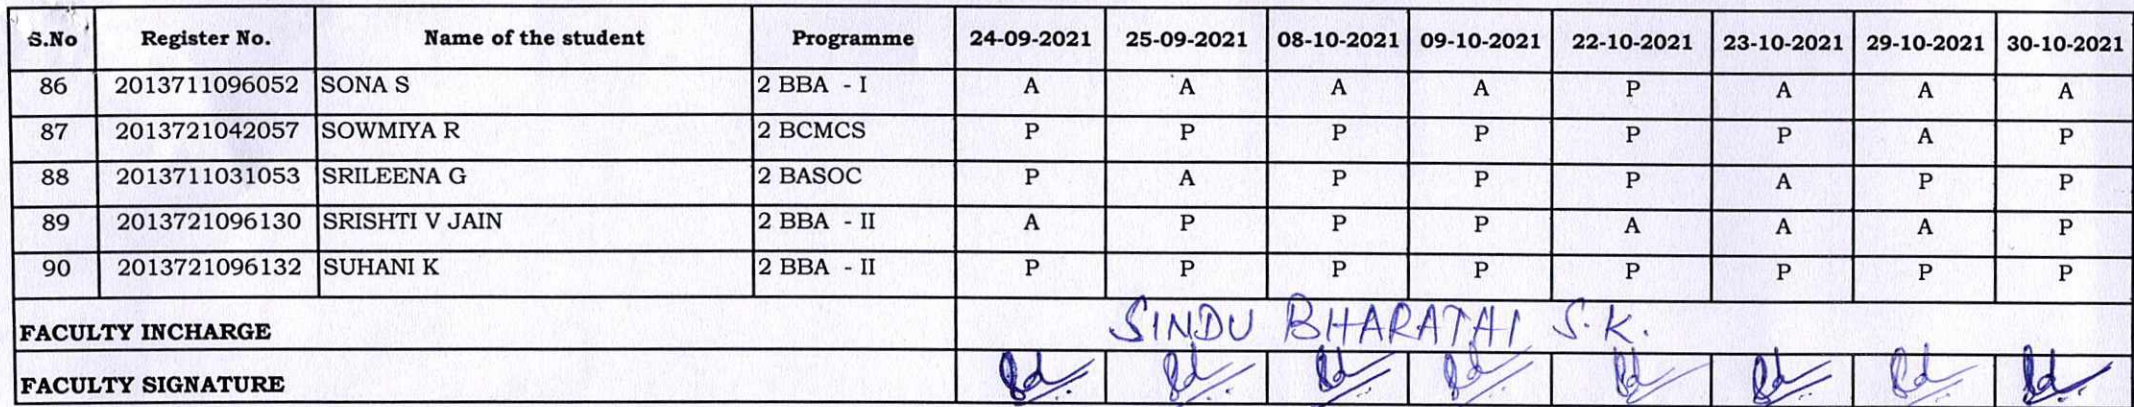 S.No Register No. Name of the student Programme 24-09-2021 25-09-2021 08-10-2021 09-10-2021 22-10-2021 23-10-2021 29-10-2021 30-10-2021
86 2013711096052 SONA S 2 BBA - I A A A A P A A A
87 2013721042057 SOWMIYA R 2 BCMCS P P P P P P A P
88 2013711031053 SRILEENA G 2 BASOC P A P P P A P P
89 2013721096130 SRISHTI V JAIN 2 BBA - II A P P P A A A P
90 2013721096132 SUHANI K 2 BBA - II P P P P P P P P
FACULTY INCHARGE SINDU BHARATHI S.K.
FACULTY SIGNATURE